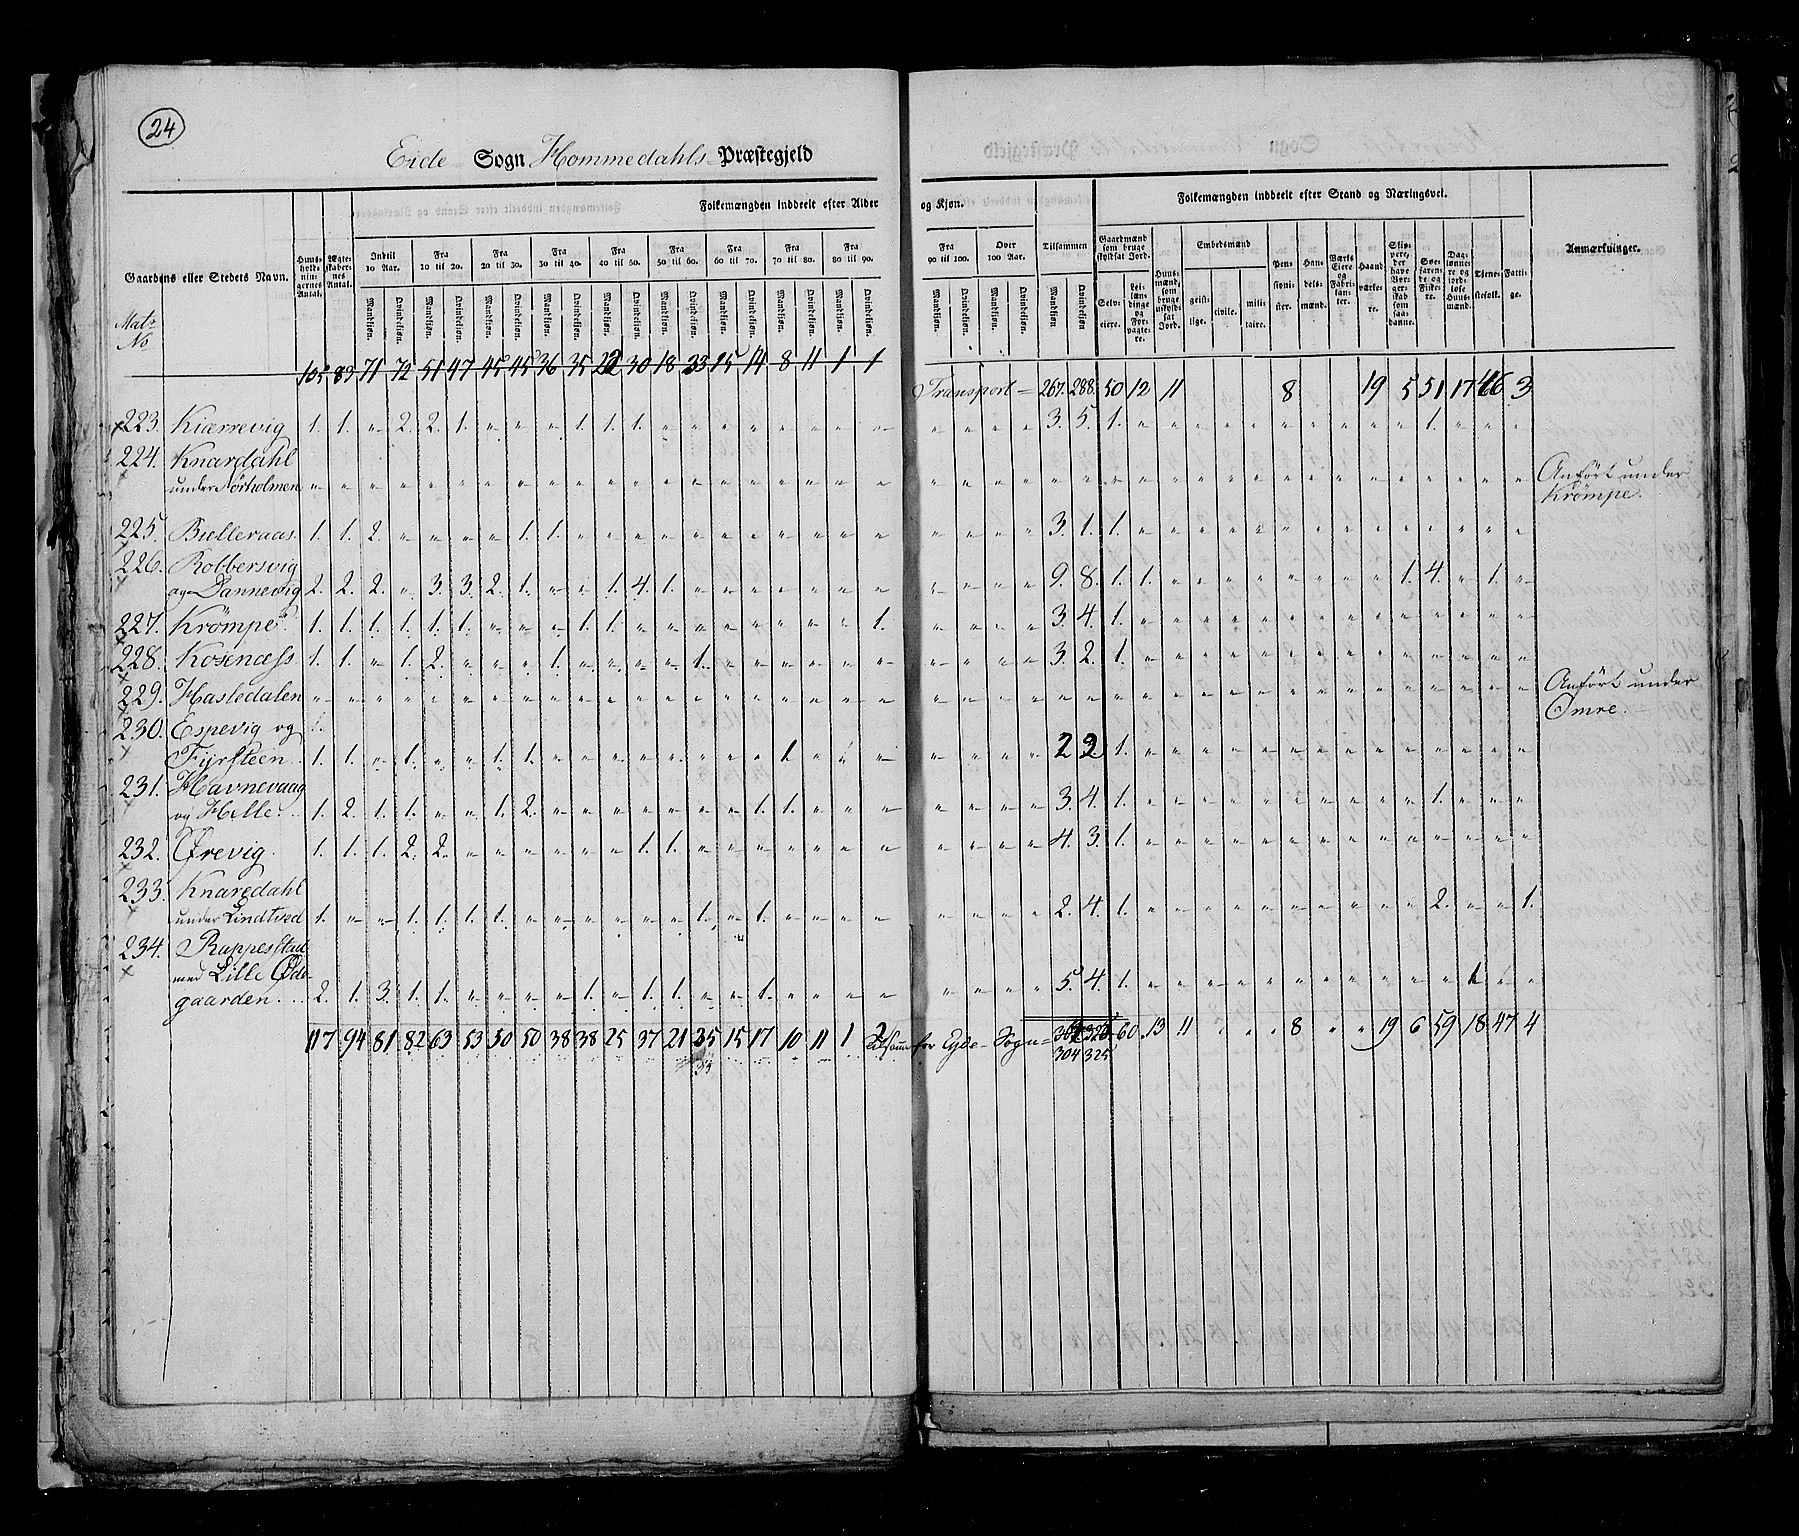 24
Eide Sogn Hommedahls Præstegjeld
Gaardens eller Stedets Navn. Huusholdningernes Antal. Ægteskabernes Antal. Folkemængden inddeelt efter Alder og Kjøn. Tilsammen Folkemængden inddeelt efter Stand og Næringsvei. Anmærkninger.
Indtil 10 Aar. Fra 10 til 20. Fra 20 til 30. Fra 30 til 40. Fra 40 til 50. Fra 50 til 60. Fra 60 til 70. Fra 70 til 80. Fra 80 til 90. Fra 90 til 100. Over 100 Aar.
Mandkjøn. Qvindekjøn. Mandkjøn. Qvindekjøn. Mandkjøn. Qvindekjøn. Mandkjøn. Qvindekjøn. Mandkjøn. Qvindekjøn. Mandkjøn. Qvindekjøn. Mandkjøn. Qvindekjøn. Mandkjøn. Qvindekjøn. Mandkjøn. Qvindekjøn. Mandkjøn. Qvindekjøn. Mandkjøn. Qvindekjøn. Mandkjøn Qvindekjøn
Gaardmænd som bruge skyldsat Jord. Selveiere. Leilændinge og Forpagtere. Huusmænd, som bruge uskyldsat Jord. Embedsmænd geistlige. civile. militaire. Pensionister. Handelsmænd. Værks Eiere og Fabrikanter. Haandværkere. Skippere, der have Borgerskab som saadanne. Søefarende og Fiskere. Daglønnere og jordløse Huusmænd. Tjenestefolk. Fattige.
Matr No
105 83 71 72 51 47 45 45 36 35 22 30 18 33 15 14 8 11 1 1 Transport = 267. 288. 50 12 11 8 19 5 51 17 46 3
223. Kiærrevig 1. 1. „ 2. 2. 1. „ „ „ 1. 1. 1. „ „ „ „ „ „ „ „ „ „ „ „ 3. 5. 1. „ „ „ „ „ „ „ „ „ „ 1. „ „ „
224. Knardahl
under Nörholmen „ „ „ „ „ „ „ „ „ „ „ „ „ „ „ „ „ „ „ „ „ „ „ „ „ „ „ „ „ „ „ „ „ „ „ „ „ „ „ „ „ Anført under Krömpe.
225. Bulleraas 1. 1. 2. „ „ „ „ 1. 1. „ „ „ „ „ „ „ „ „ „ „ „ „ „ „ 3. 1. 1. „ „ „ „ „ „ „ „ „ „ „ „ „ „
226. Robbersvig
og Dannevig 2. 2. 2. „ 3. 3. 2. 1. „ „ 1. 4. 1. „ „ „ „ „ „ „ „ „ „ „ 9. 8. 1. 1. „ „ „ „ „ „ „ „ 1. 4. „ 1. „
227. Krömpe 1. 1. 1. 1. 1. 1. „ „ „ 1. 1. „ „ „ „ „ „ „ „ 1. „ „ „ „ 3. 4. 1. „ „ „ „ „ „ „ „ „ „ „ „ „ „
228. Kosenæss 1. 1. „ 1. 2. „ „ „ 1. „ „ „ „ 1. „ „ „ „ „ „ „ „ „ „ 3. 2. 1. „ „ „ „ „ „ „ „ „ „ „ „ „ „
229. Hasledalen „ „ „ „ „ „ „ „ „ „ „ „ „ „ „ „ „ „ „ „ „ „ „ „ „ „ „ „ „ „ „ „ „ „ „ „ „ „ „ „ „ Anført under Omre.
230. Espevig og
Fyrsteen 1. 1. „ 1. „ „ 1. 1. „ „ „ „ „ „ „ „ 1. „ „ „ „ „ „ „ 2 2. 1. „ „ „ „ „ „ „ „ „ „ „ „ „ „
231. Havnevaag
og Helle. 1. 2. 1. 1. „ „ 1. 2. „ „ „ „ „ „ „ 1. 1. „ „ „ „ „ „ „ 3. 4. 1. „ „ „ „ „ „ „ „ „ „ 1. „ „ „
232. Ørevig. 1. 1. 1. 2. 2. „ „ „ „ „ „ 1. 1. „ „ „ „ „ „ „ „ „ „ „ 4. 3. 1. „ „ „ „ „ „ „ „ „ „ „ „ „ „
233. Knaredahl
under Lindtved 1. „ „ 1. 1. 1. 1. „ „ „ „ „ „ 1. „ 1. „ „ „ „ „ „ „ „ 2. 4. 1. „ „ „ „ „ „ „ „ „ „ 2. „ „ 1.
234. Ruppesstad
med Lille Øde
gaarden. 2. 1. 3. 1. 1. „ „ „ „ 1. „ 1. 1. „ „ 1. „ „ „ „ „ „ „ „ 5. 4. 1. „ „ „ „ „ „ „ „ „ „ „ 1. „ „
117 94 81 82 63 53 50 50 38 38 25 37 21 35 15 17 10 11 1 2 for Eyde Sogn = 60 13 11 8 19 6 59 18 47 4
304 325